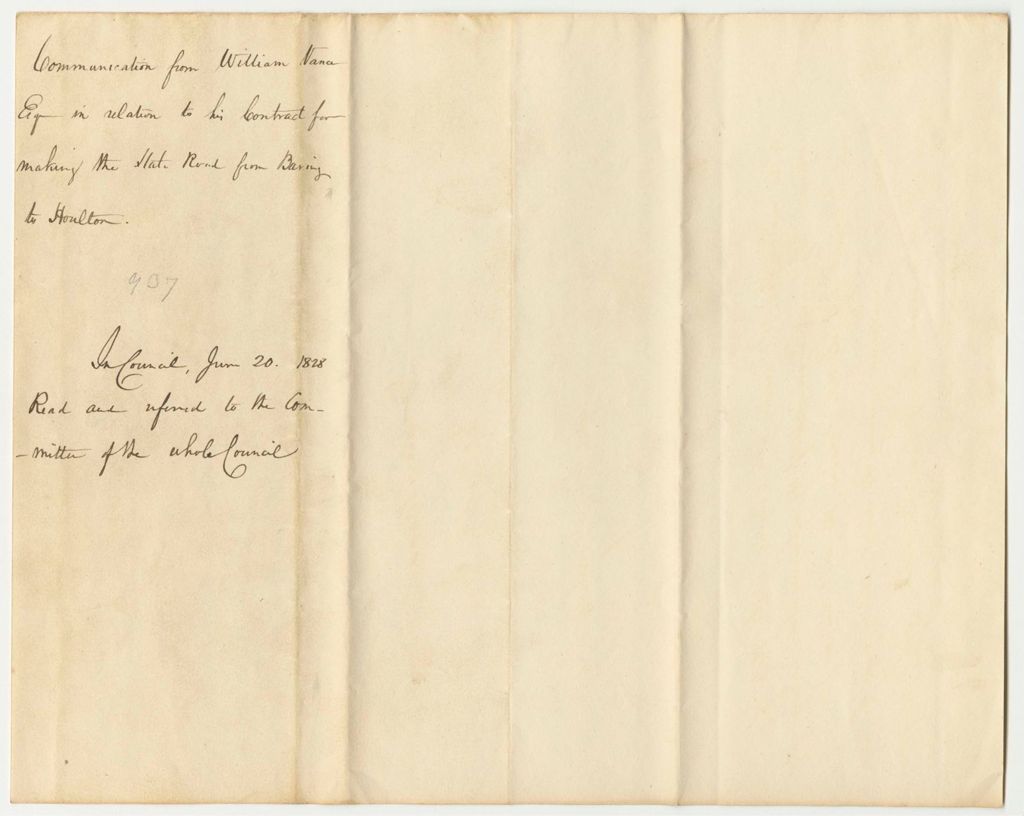 Communication from William Vance
Esqr in relation to his Contract for
making the State Road from Baring
to Houlton.
937
In Council, June 20. 1828
Read and referred to the Com-
-mittee of the whole Council